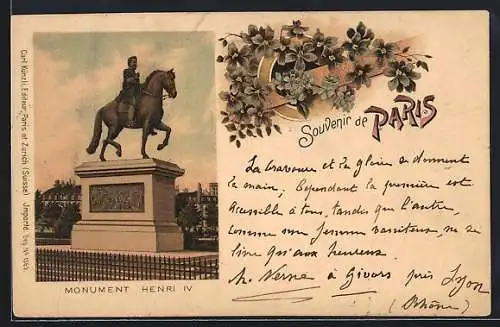 Carl Künzli, Editeur, Paris et Zurich (Suisse) Importé
Souvenir de PARIS
La bravoure et la gloire se donnent
la main; Cependant la première est
accessible à tous, tandis que l'autre,
comme une femme vaniteuse, ne se
livre qu'aux heureux.
Verne à Givors près Lyon
(Rhône)
MONUMENT HENRI IV